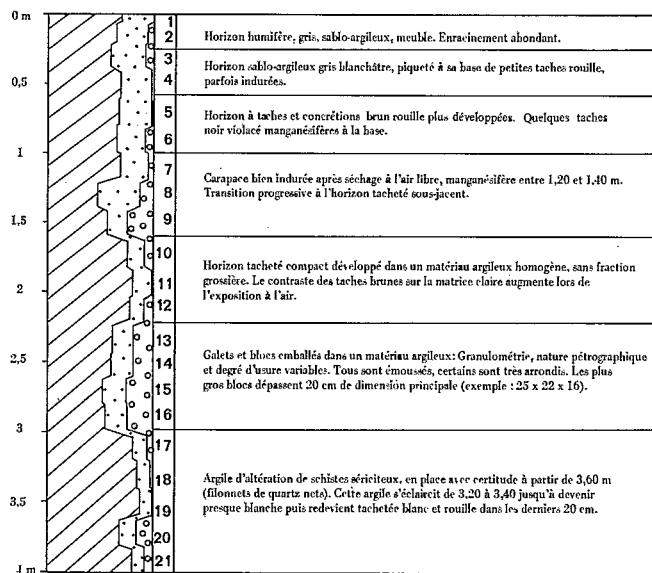 0 m
1
2
Horizon humifère, gris, sablo-argileux, meuble. Enracinement abondant.
3
0,5
4
Horizon sablo-argileux gris blanchâtre, piqueté à sa base de petites taches rouille,
parfois indurées.
5
6
Horizon à taches et concrétions brun rouille plus développées. Quelques taches
noir violacé manganésifères à la base.
1
7
8
9
Carapace bien indurée après séchage à l'air libre, manganésifère entre 1,20 et 1,40 m.
Transition progressive à l'horizon tacheté sous-jacent.
1,5
10
11
2
12
Horizon tacheté compact développé dans un matériau argileux homogène, sans fraction
grossière. Le contraste des taches brunes sur la matrice claire augmente lors de
l'exposition à l'air.
13
2,5
14
15
16
Galets et blocs emballés dans un matériau argileux: Granulométrie, nature pétrographique
et degré d'usure variables. Tous sont émoussés, certains sont très arrondis. Les plus
gros blocs dépassent 20 cm de dimension principale (exemple : 25 x 22 x 16).
3
17
18
3,5
19
20
21
Argile d'altération de schistes sériciteux, en place avec certitude à partir de 3,60 m
(filonnets de quartz nets). Cette argile s'éclaircit de 3,20 à 3,40 jusqu'à devenir
presque blanche puis redevient tachetée blanc et rouille dans les derniers 20 cm.
4 m